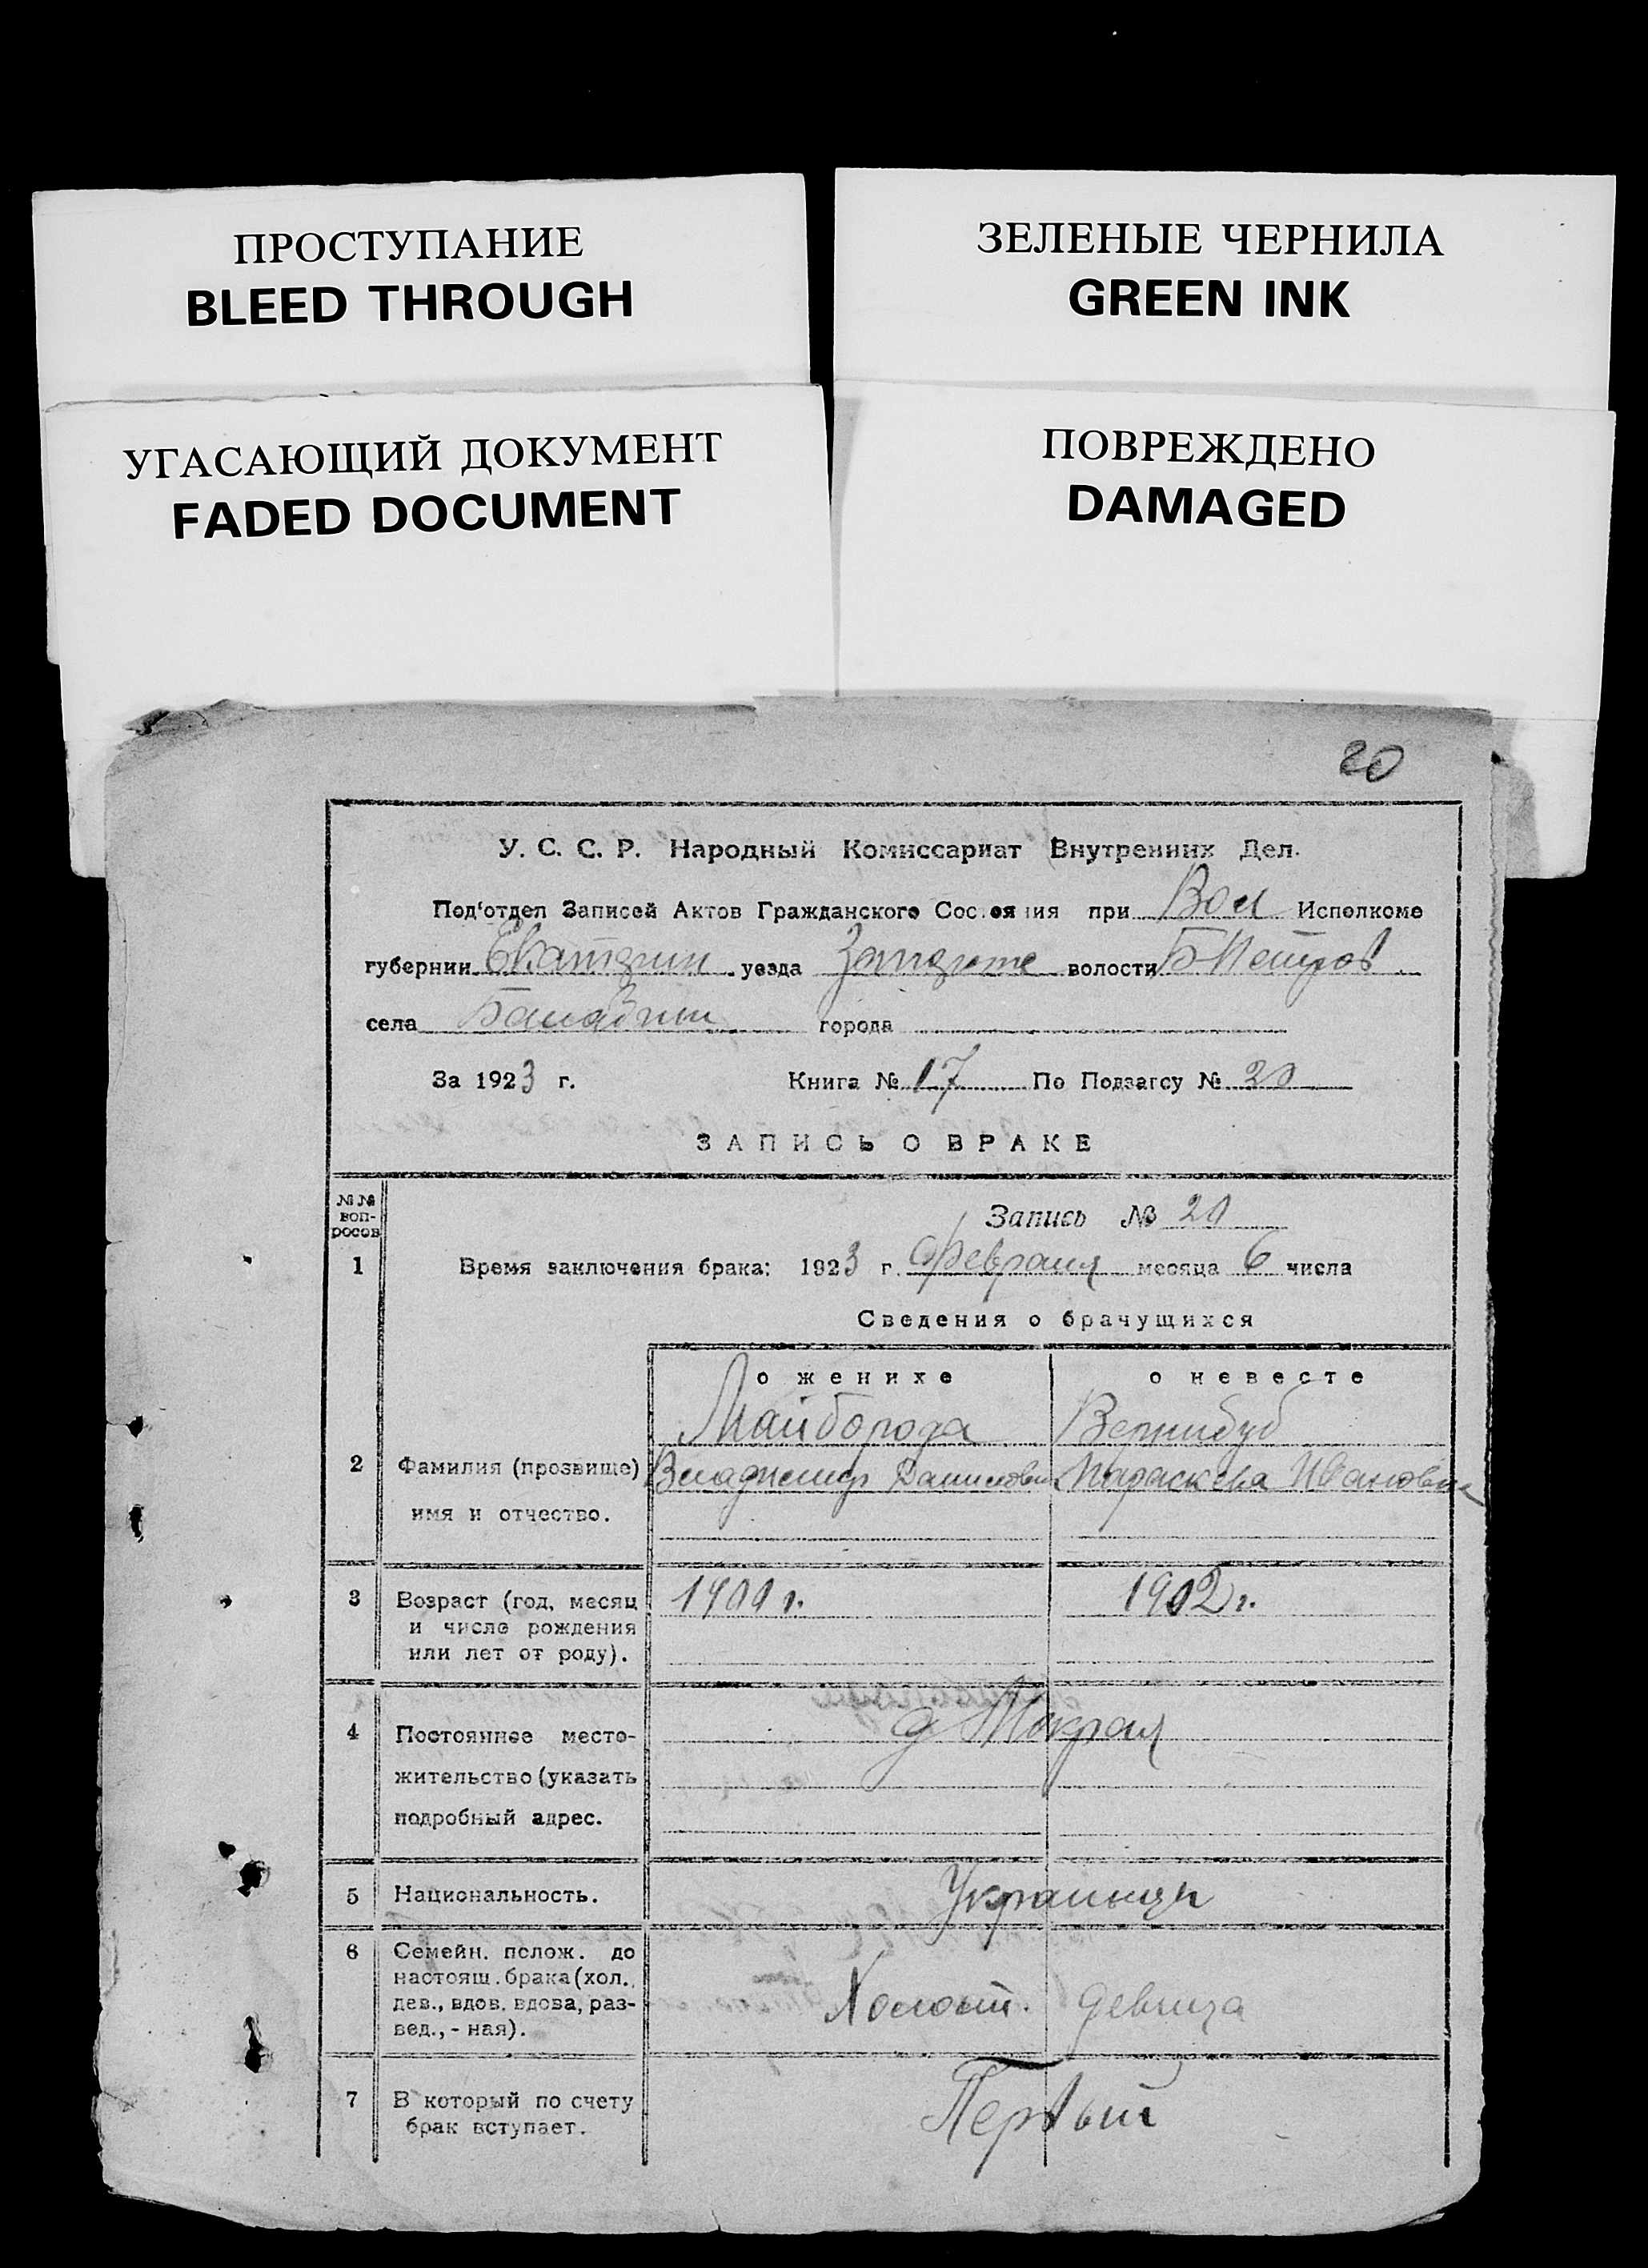 ПРОСТУПАНИЕ
BLEED THROUGH
ЗЕЛЕНЫЕ ЧЕРНИЛА
GREEN INK
УГАСАЮЩИЙ ДОКУМЕНТ
FADED DOCUMENT
ПОВРЕЖДЕНО
DAMAGED
20
У. С. С. Р. Народный Комиссариат Внутренних Дел.
Под'отдел Записей Актов Гражданского Состояния при Вол Исполкоме
губернии уезда волости Б Петров
села города
За 1923 г. Книга № 17 По Подзагсу № 20
ЗАПИСЬ О БРАКЕ
№№ вопросов
Запись № 20
1 Время заключения брака: 1923 г. Февраля месяца 6 числа
Сведения о брачущихся
о женихе о невесте
Майборода Вернидуб
2 Фамилия (прозвище) Владимир Данилович Параскева Ивановна
имя и отчество.
3 Возраст (год, месяц 1900 г. 1902 г.
и число рождения
или лет от роду).
4 Постоянное место- д Мокрая
жительство (указать
подробный адрес.
5 Национальность. Украинцы
6 Семейн. полож. до
настоящ. брака (хол.,
дев., вдов, вдова, раз- Холост. девица
вед., - ная).
7 В который по счету Первый
брак вступает.